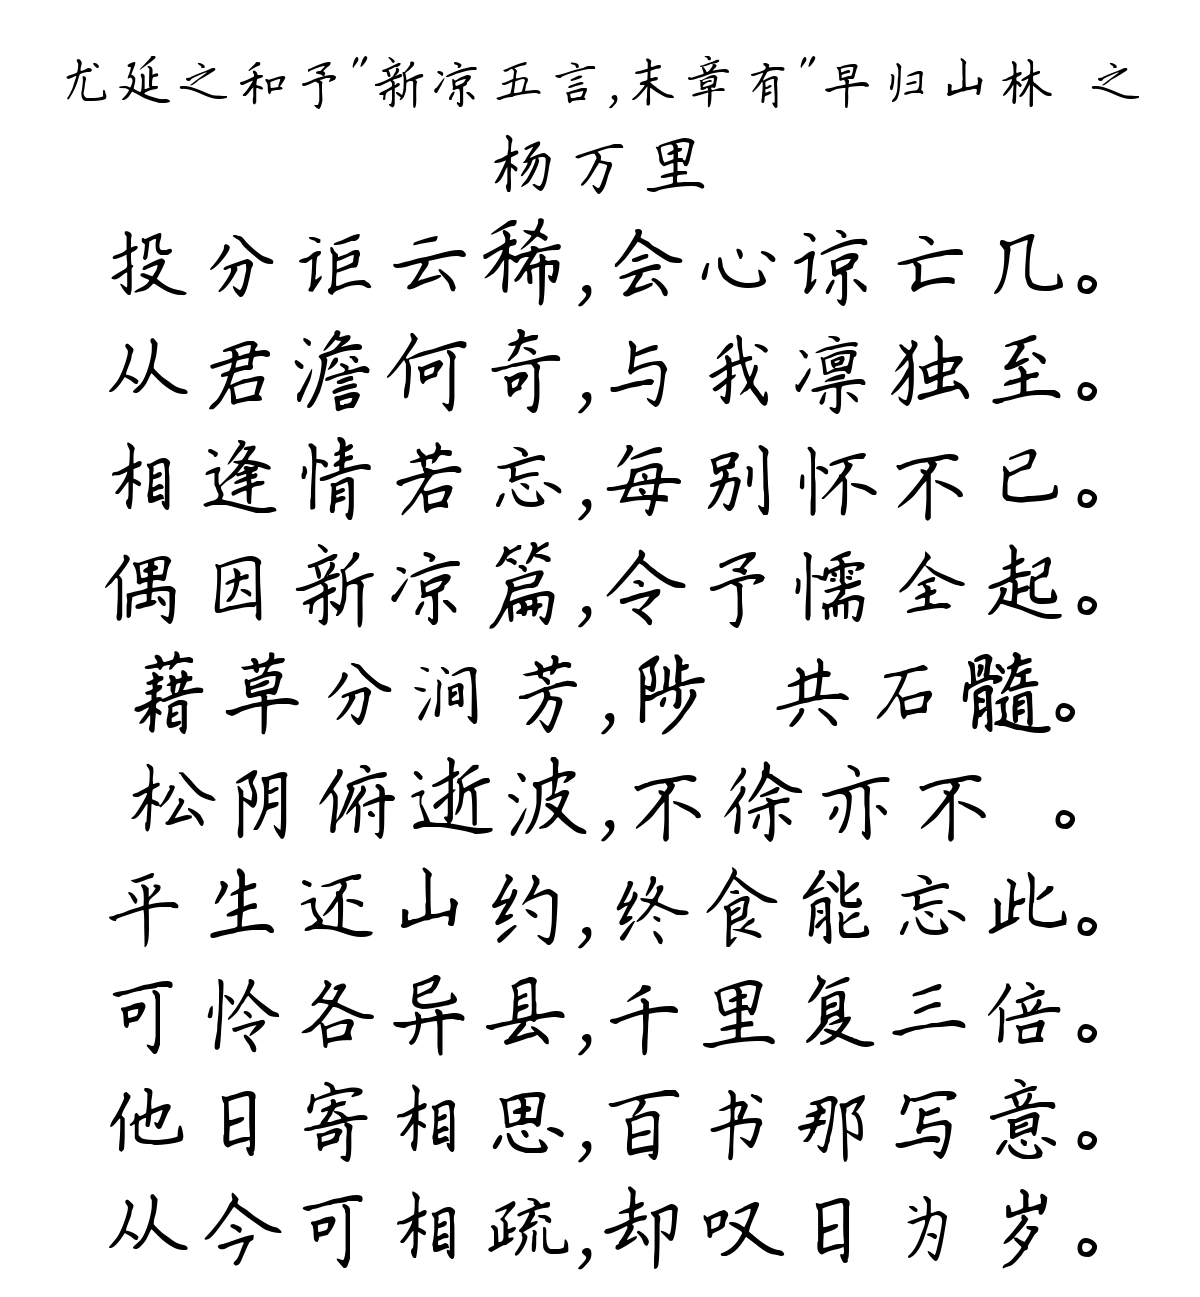 尤延之和予"新凉五言,末章有"早归山林 之
杨万里
投分讵云稀,会心谅亡几。
从君澹何奇,与我凛独至。
相逢情若忘,每别怀不已。
偶因新凉篇,令予懦全起。
藉草分涧芳,陟 共石髓。
松阴俯逝波,不徐亦不 。
平生还山约,终食能忘此。
可怜各异县,千里复三倍。
他日寄相思,百书那写意。
从今可相疏,却叹日为岁。